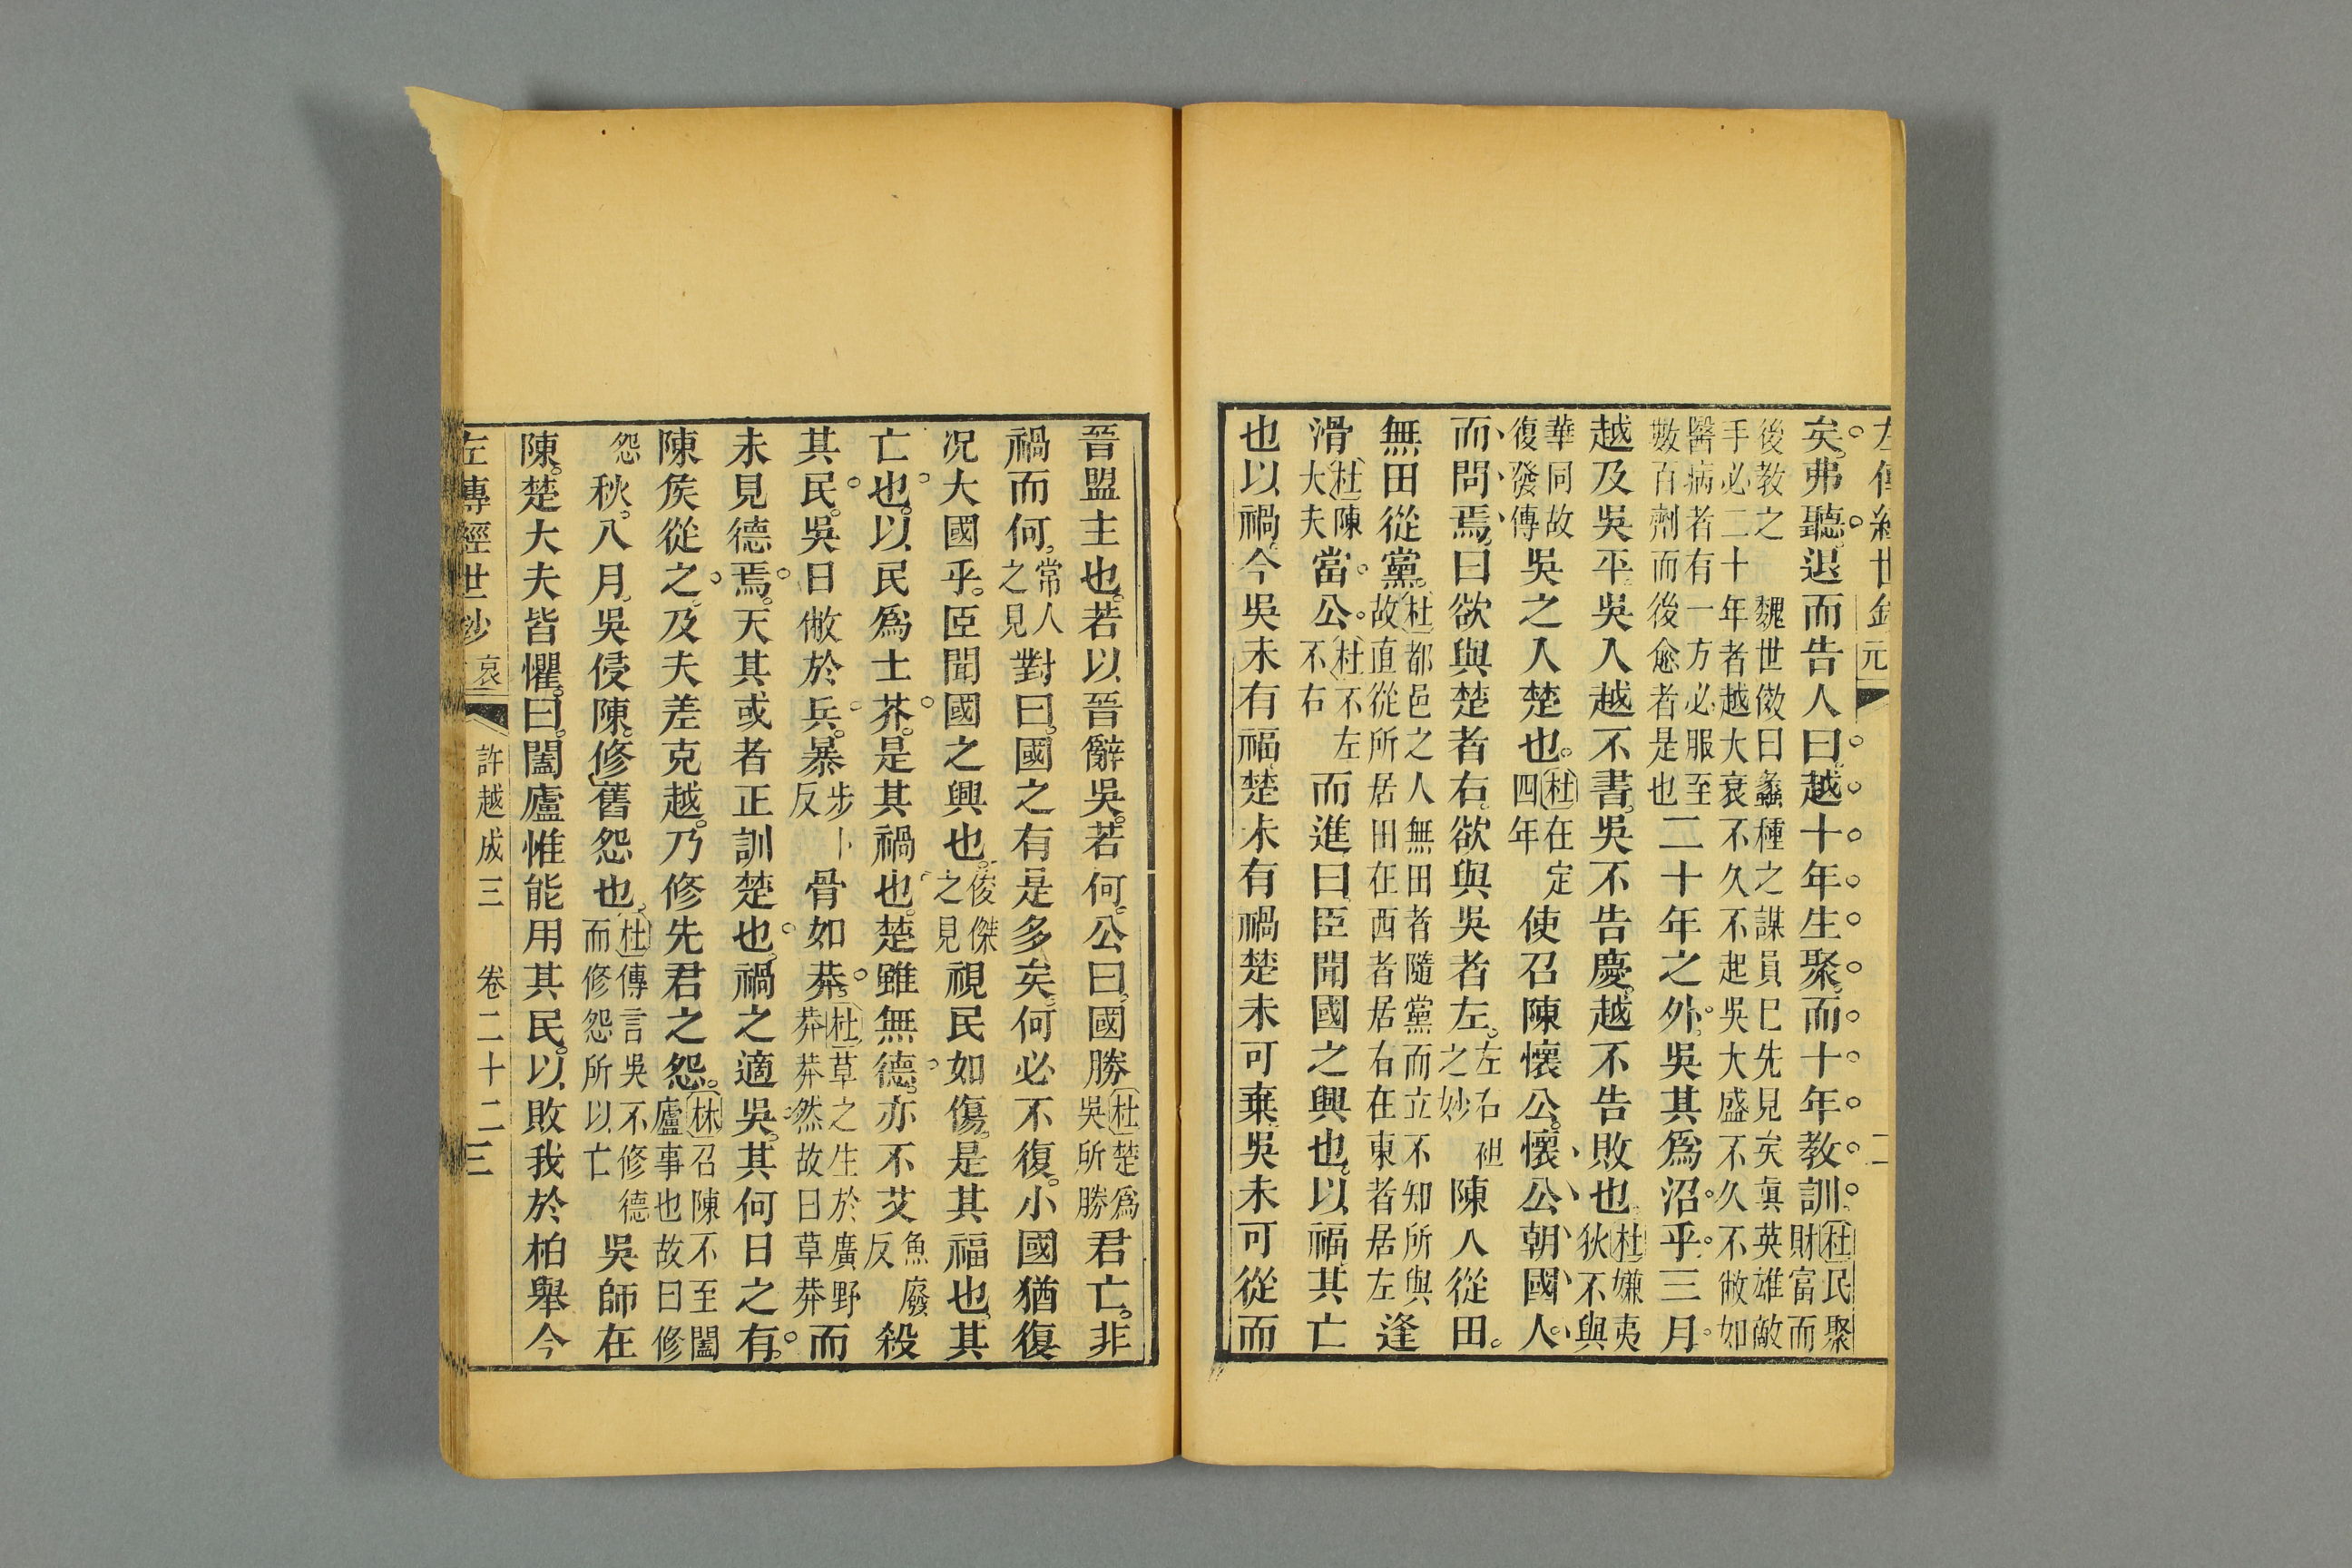 左傳經世鈔 元 二
矣。弗聽。退而告人曰。越十年生聚。而十年教訓。杜民聚財富而
後教之 魏世傚曰蠡種之謀員巳先見矣眞英雄敵手必二十年者越大衰不久不起吳大盛不久不敝如
醫病者有一方必服至數百劑而後愈者是也 二十年之外。吳其爲沼乎。三月。
越及吳平。吳入越不書。吳不告慶。越不告敗也。杜嫌夷狄不與
華同故復發傳 吳之入楚也。杜在定四年 使召陳懷公。懷公朝國人
而問焉。曰欲與楚者右。欲與吳者左。左右袒之妙 陳人從田。
無田從黨。杜都邑之人無田者隨黨而立不知所與故直從所居田在西者居右在東者居左 逢
滑杜陳大夫 當公。杜不左不右 而進曰。臣聞國之興也。以福。其亡
也以禍。今吳未有福。楚未有禍。楚未可棄。吳未可從。而
晉盟主也。若以晉辭吳。若何。公曰。國勝杜楚爲吳所勝 君亡。非
禍而何。常人之見 對曰。國之有是多矣。何必不復。小國猶復。
况大國乎。臣聞國之興也。俊傑之見 視民如傷。是其福也。其
亡也。以民爲土芥。是其禍也。楚雖無德。亦不艾魚廢反 殺
其民。吳日敝於兵。暴步卜反 骨如莽。杜草之生於廣野莽莽然故曰草莽 而
未見德焉。天其或者正訓楚也。禍之適吳。其何日之有。
陳侯從之。及夫差克越。乃修先君之怨。林召陳不至闔廬事也故曰修
怨 秋。八月。吳侵陳。修舊怨也。杜傳言吳不修德而修怨所以亡 吳師在
陳。楚大夫皆懼。曰。闔廬惟能用其民。以敗我於柏舉。今
左傳經世鈔 哀 許越成三 卷二十二 三